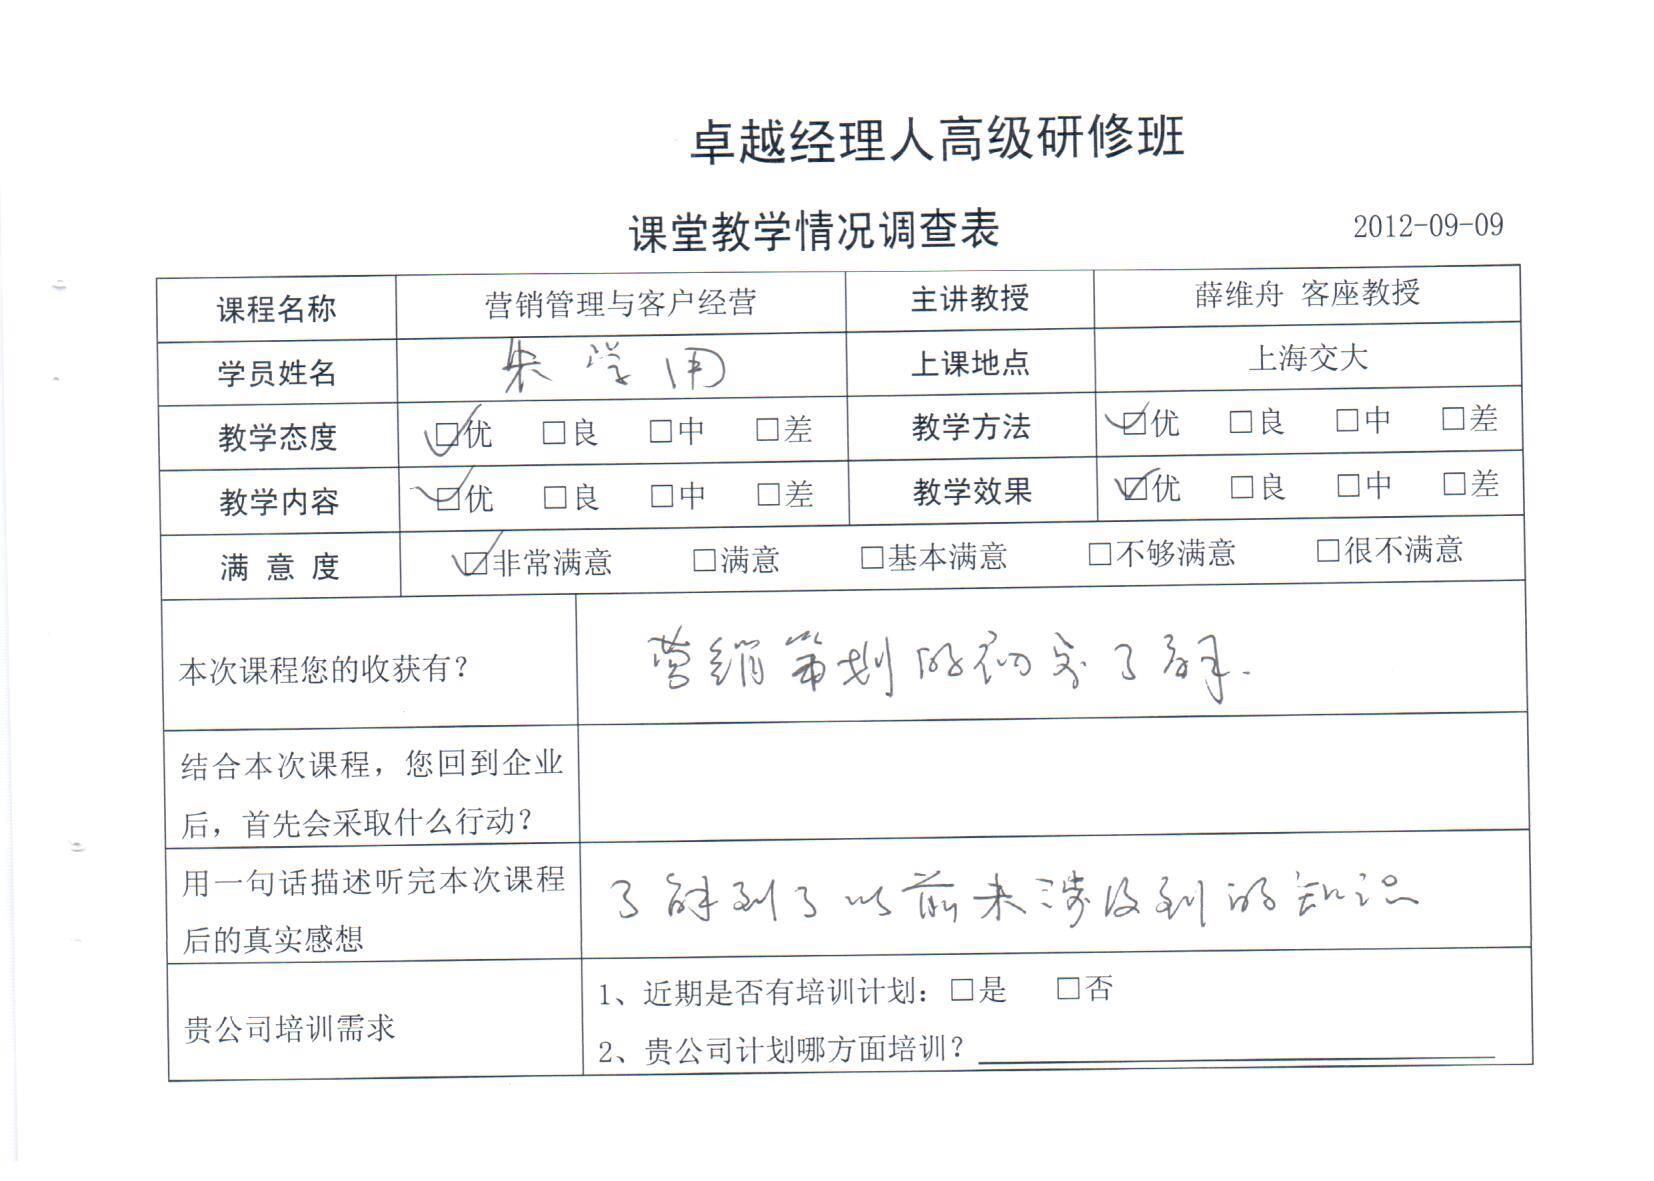 卓越经理人高级研修班
课堂教学情况调查表 2012-09-09
课程名称 营销管理与客户经营 主讲教授 薛维舟 客座教授
学员姓名 朱学用 上课地点 上海交大
教学态度 ☑优 □良 □中 □差 教学方法 ☑优 □良 □中 □差
教学内容 ☑优 □良 □中 □差 教学效果 ☑优 □良 □中 □差
满意度 ☑非常满意 □满意 □基本满意 □不够满意 □很不满意
本次课程您的收获有? 营销策划的初步了解.
结合本次课程,您回到企业
后,首先会采取什么行动?
用一句话描述听完本次课程
后的真实感想
了解到了以前未涉及到的知识
贵公司培训需求
1、近期是否有培训计划:□是 □否
2、贵公司计划哪方面培训?